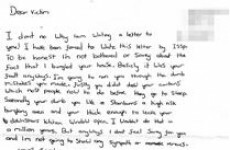 Dear Victim
I dont no Why I am writing a letter to
you! I have been forced to write this letter by ISSP.
To be honest I'm not bothered or Sorry about the
fact that I burgled your house. Basicly it was your
fault anyways. I'm going to run you through the dumb
mistakes you made. Firstly you didnt draw your curtains
which most people now to do before they go to Sleep.
Secondly your dumb you live in Stainburn a high risk
burglary area and your thick enough to leave your
downstairs kitchen Window open. I wouldnt do that in
a million years. But anyways I dont feel Sorry for you
and I'm not going to Show any Sympathy or remorse.